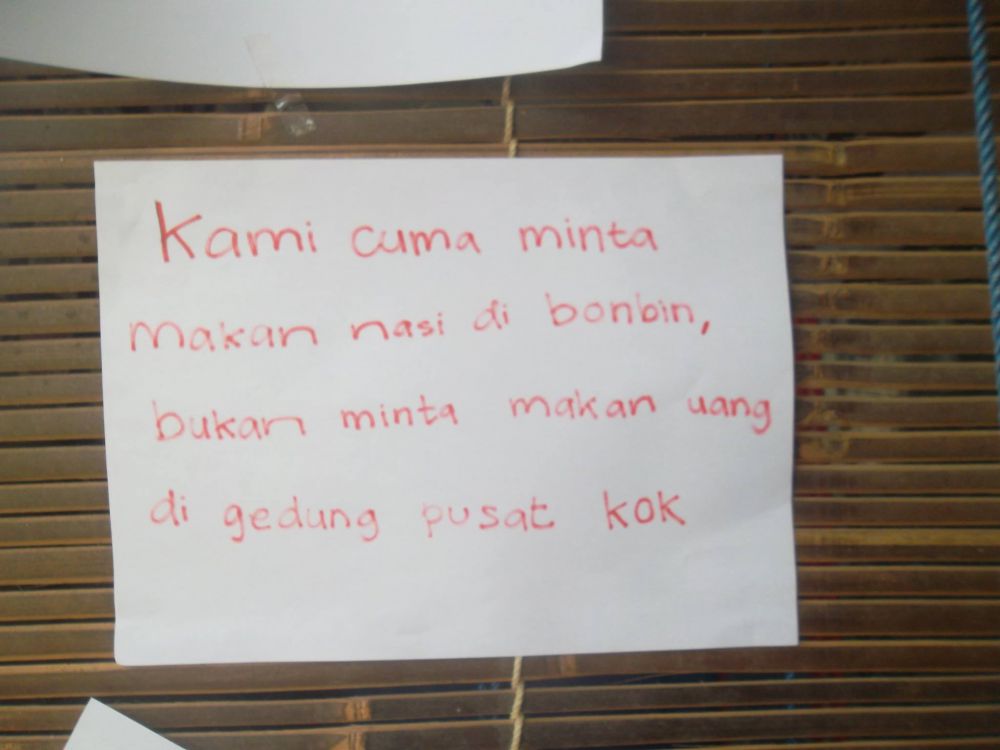 Kami cuma minta
makan nasi di bonbin,
bukan minta makan uang
di gedung pusat kok